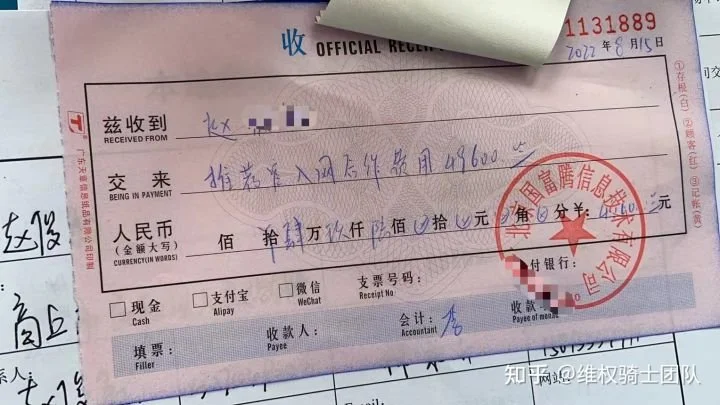 收 OFFICIAL RECEI
1131889
2022 年 8 月 15 日
兹收到 赵
RECEIVED FROM
交来 推荐官入网合作费用 49600
BEING IN PAYMENT
人民币 佰 拾 肆 万 玖 仟 陆 佰 拾 元 角 分 ¥: 元
(金额大写)
CURRENCY(IN WORDS)
国富腾信息技术有限公司
现金 支付宝 微信 支票号码: 付银行:
Cash Alipay WeChat Receipt No.
填票: 收款人: 会计: 收款
Filler Payee Accountant Payee of
①存根(白) ②顾客(红) ③记帐(黄)
广东天章信息纸品有限公司印制
商丘
系人:
网站
知乎 @维权骑士团队